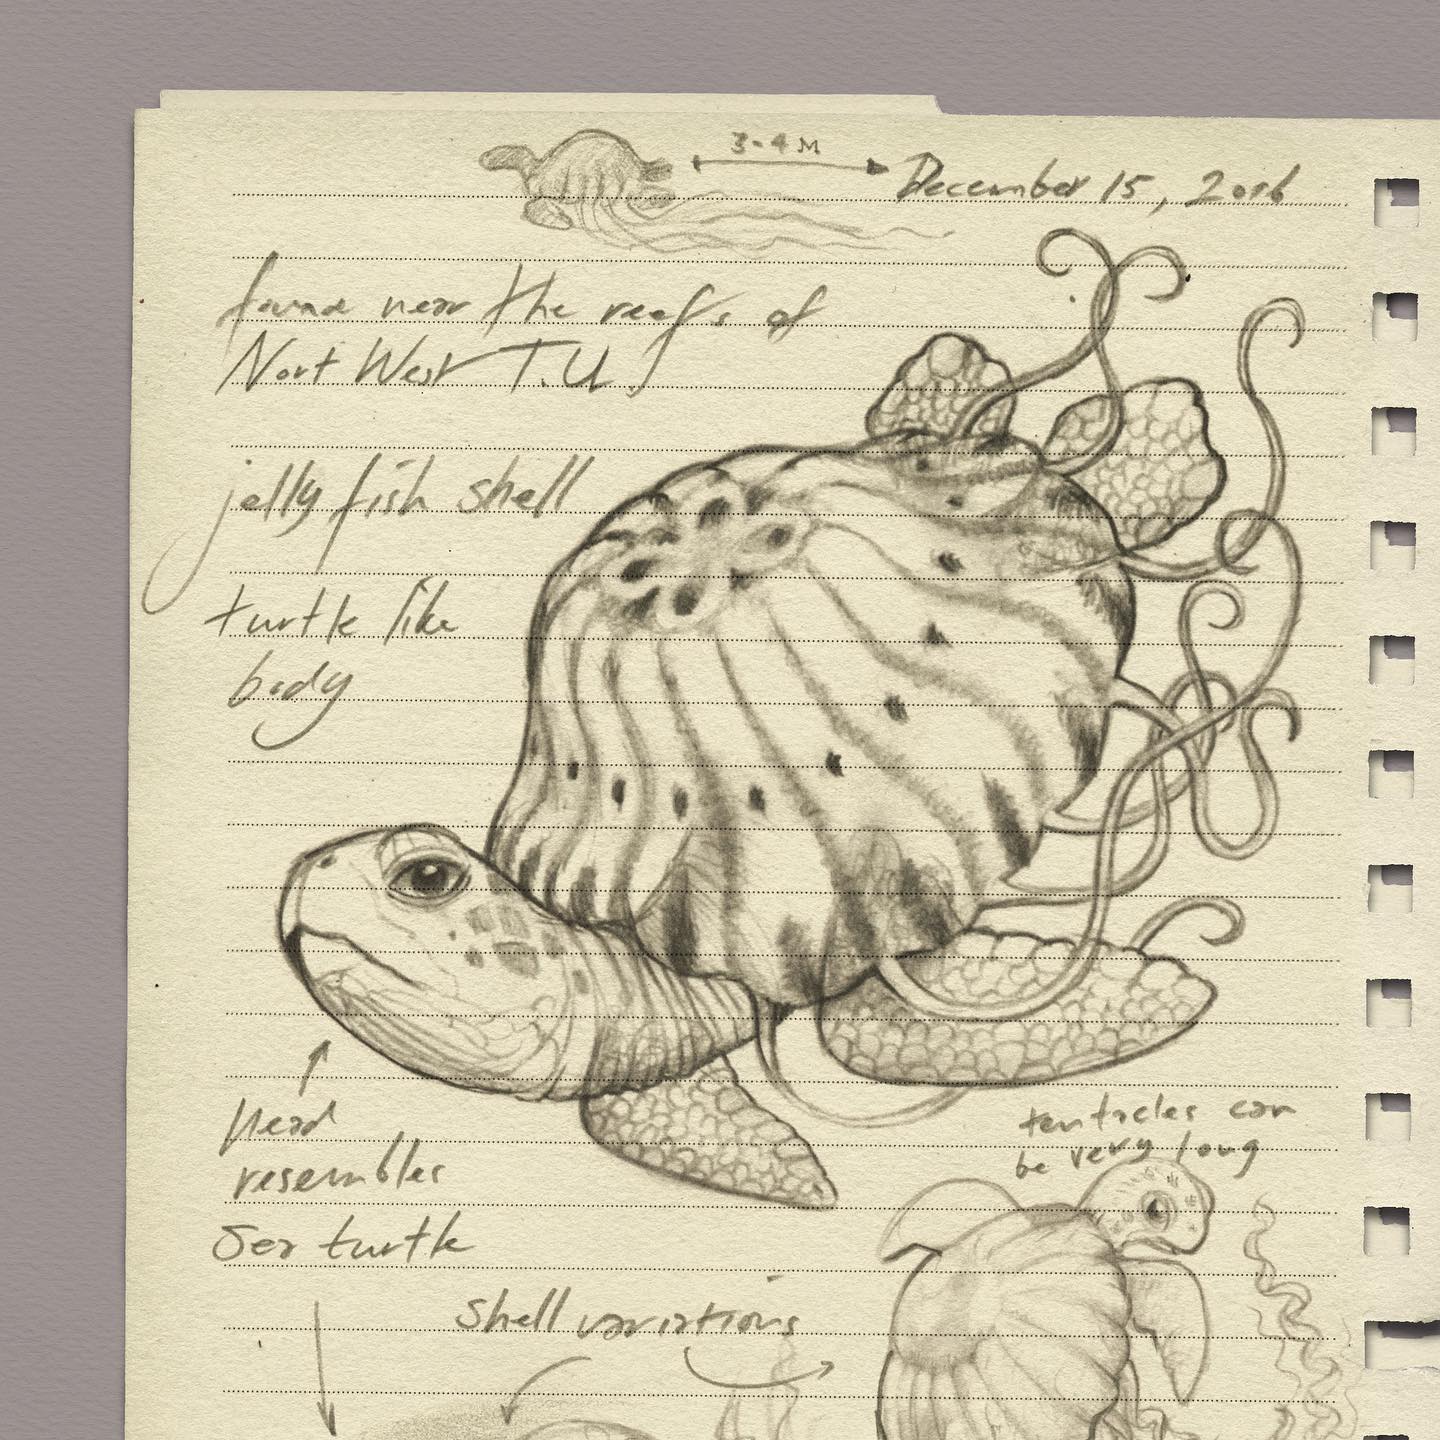 3-4 M
December 15, 2016
found near the reef's of
Nort West T.U.
jelly fish shell
turtle like
body
head
resembles
Sea turtle
tentacles can
be very long
Shell variations